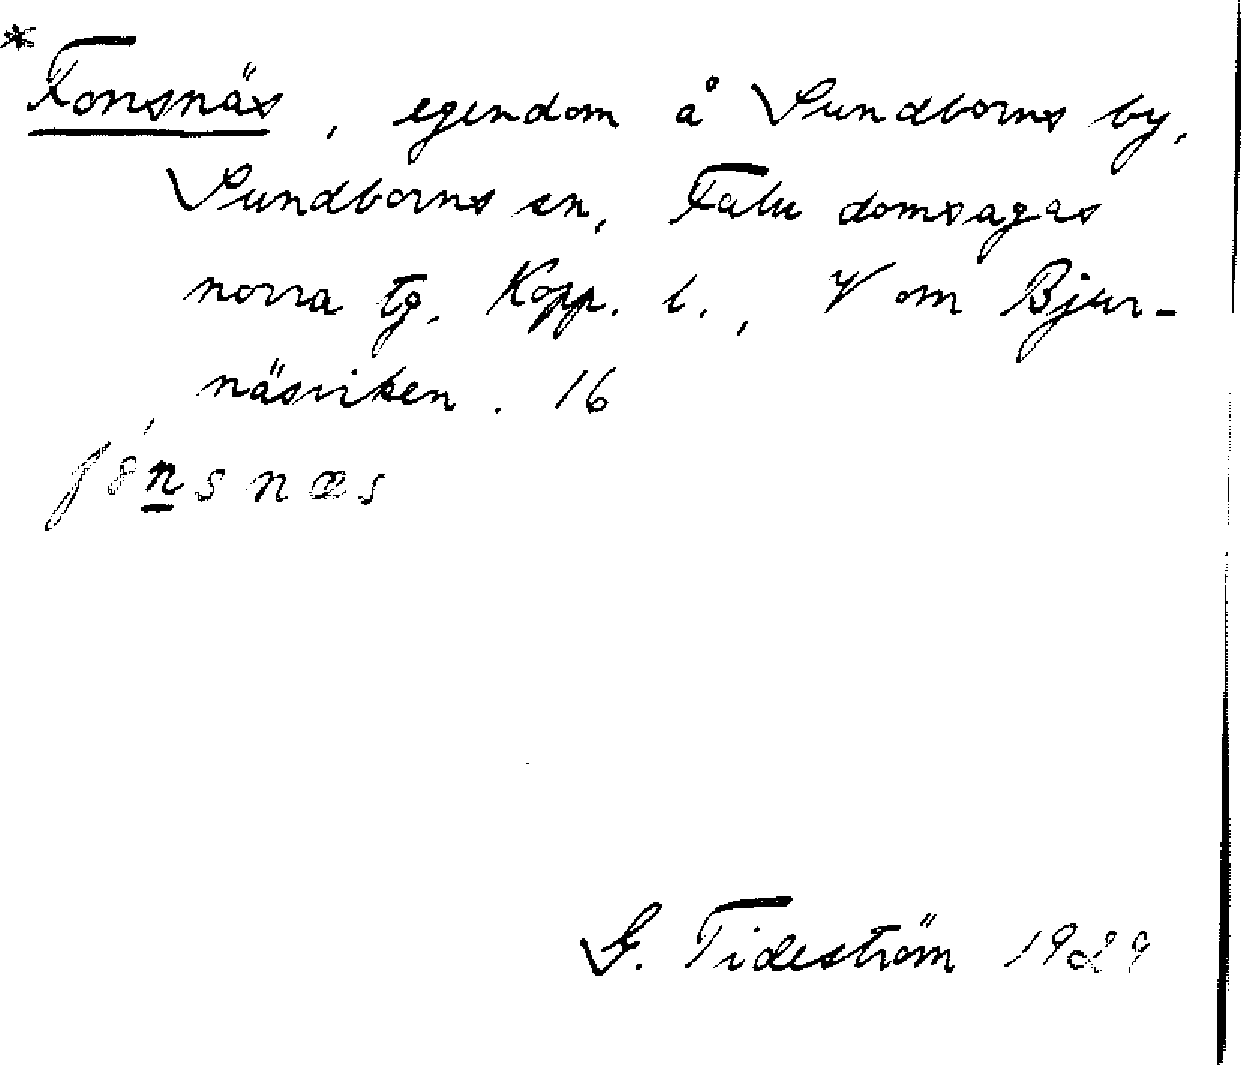 * Fonsnäs, egendom å Sundborns by,
Sundborns sn, Falu domsagas
norra tg, Kopp. l., V om Bjur-
näsviken. 16
fó̀nsnæs
G. Tideström 1929